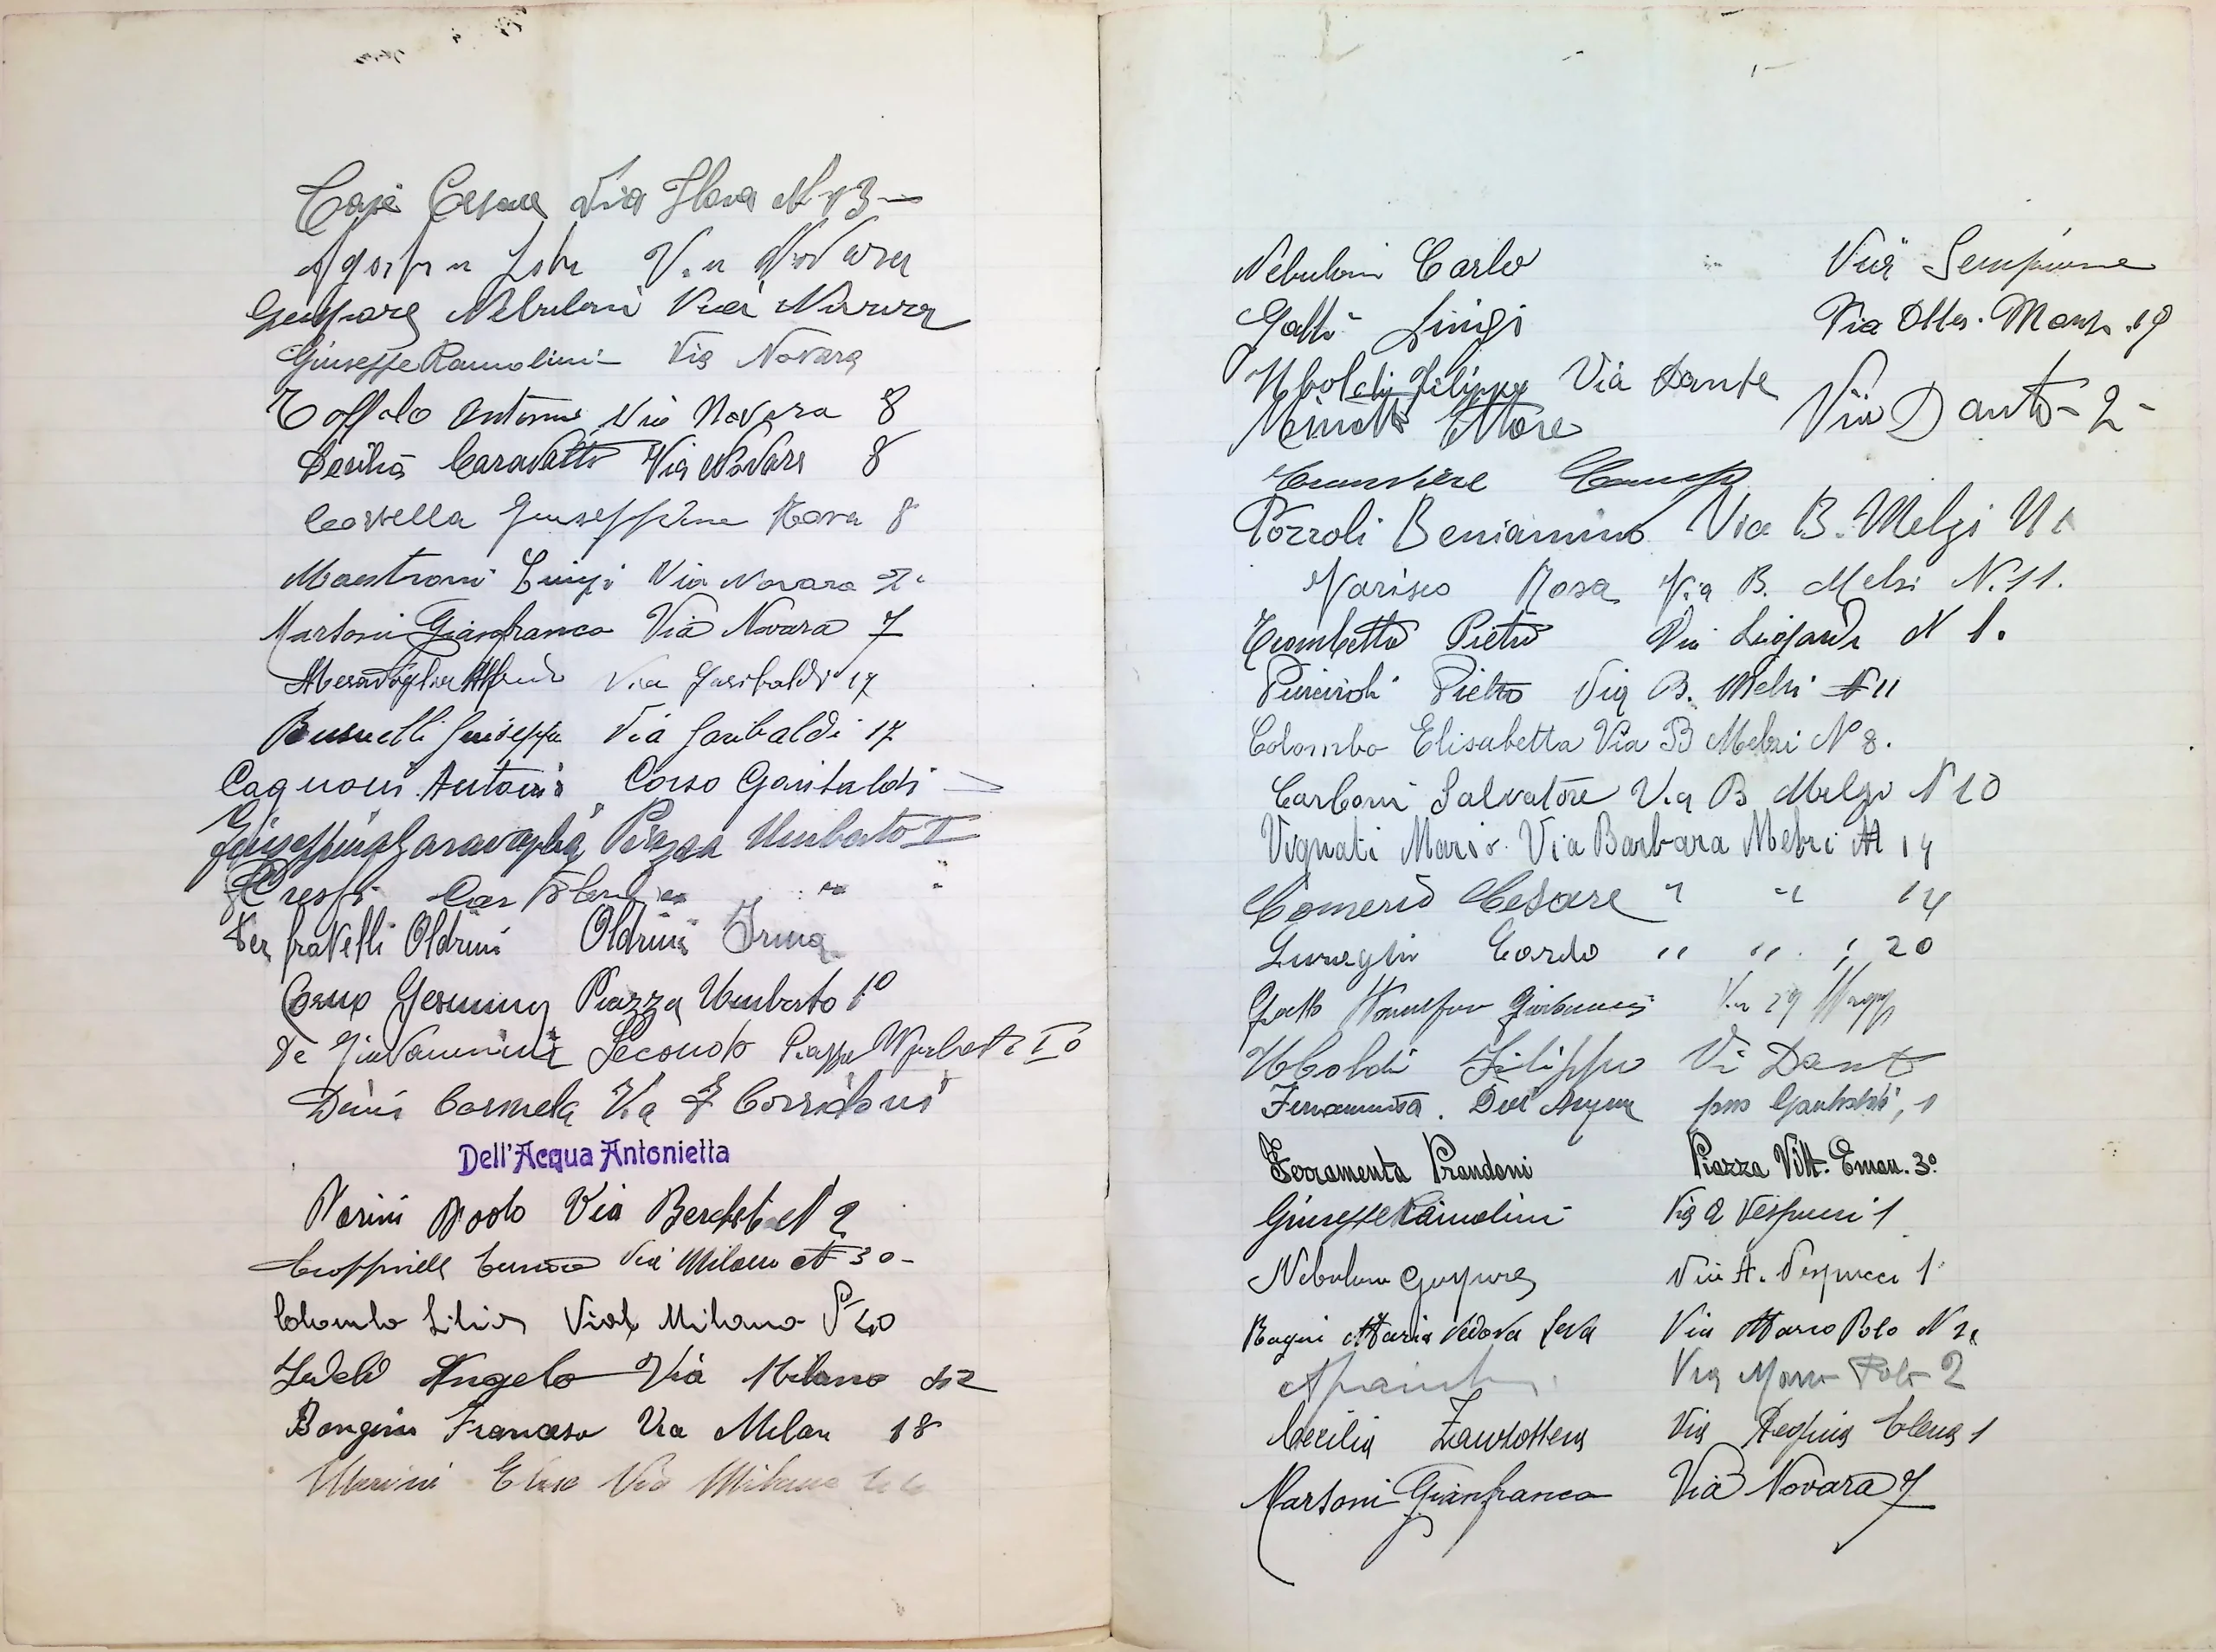 Casè Cesare Via Ilova N 13 —
Via Novara
Gaspare Nebuloni Via Novara
Giuseppe Ramolini Via Novara
Toffolo Antonio Via Novara 8
Cecilia Caravatti Via Novara 8
Corvella Giuseppina Novara 8
Maestroni Luigi Via Novara 2
Marsoni Gianfranco Via Novara 7
Meraviglia Alfredo Via Garibaldi 17
Busnelli Giuseppe Via Garibaldi 17
Cagnoni Antonio Corso Garibaldi
Giuseppina Garavaglia Piazza Umberto I
Crespi " "
Per fratelli Oldrini Oldrini Irma
Piazza Umberto 1º
De Giovannini Secondo Piazza Umberto Iº
Dini Carmela Via F Corridoni
Dell'Acqua Antonietta
Parini Paolo Via Berchet N 2
Via Milano N 30 -
Colombo Via Milano 40
Angelo Via Milano 42
Bongini Francesco Via Milan 18
Via Milano
Nebuloni Carlo Via Sempione
Gatti Luigi Via 19
Uboldi Filippo Via Dante
Ettore Via Dante - 2 -
Pozzoli Beniamino Via B. Melzi N 1
Varisco Rosa Via B. Melzi N. 11.
Trombetta Pietro Via N 1.
Pietro Via B. Melzi N 11
Colombo Elisabetta Via B Melzi N 8.
Carboni Salvatore Via B Melzi N 10
Vignati Mario. Via Barbara Melzi N 14
Comerio Cesare " " 14
Carlo " " " 20
Gatti Via 29 Magg
Uboldi Filippo Vi Dant
Ferramenta. Dell'Acqua Garibaldi, 1
Ferramenta Prandoni Piazza Vitt. Eman. 3º
Giuseppe Ramolini Via A Vespucci 1
Nebuloni Gaspare Via A. Vespucci 1
Bagni Maria vedova Seva Via Marco Polo N 2
Via Marco Polo 2
Cecilia Zanzottera Via Regina Elena 1
Marsoni Gianfranco Via Novara 7